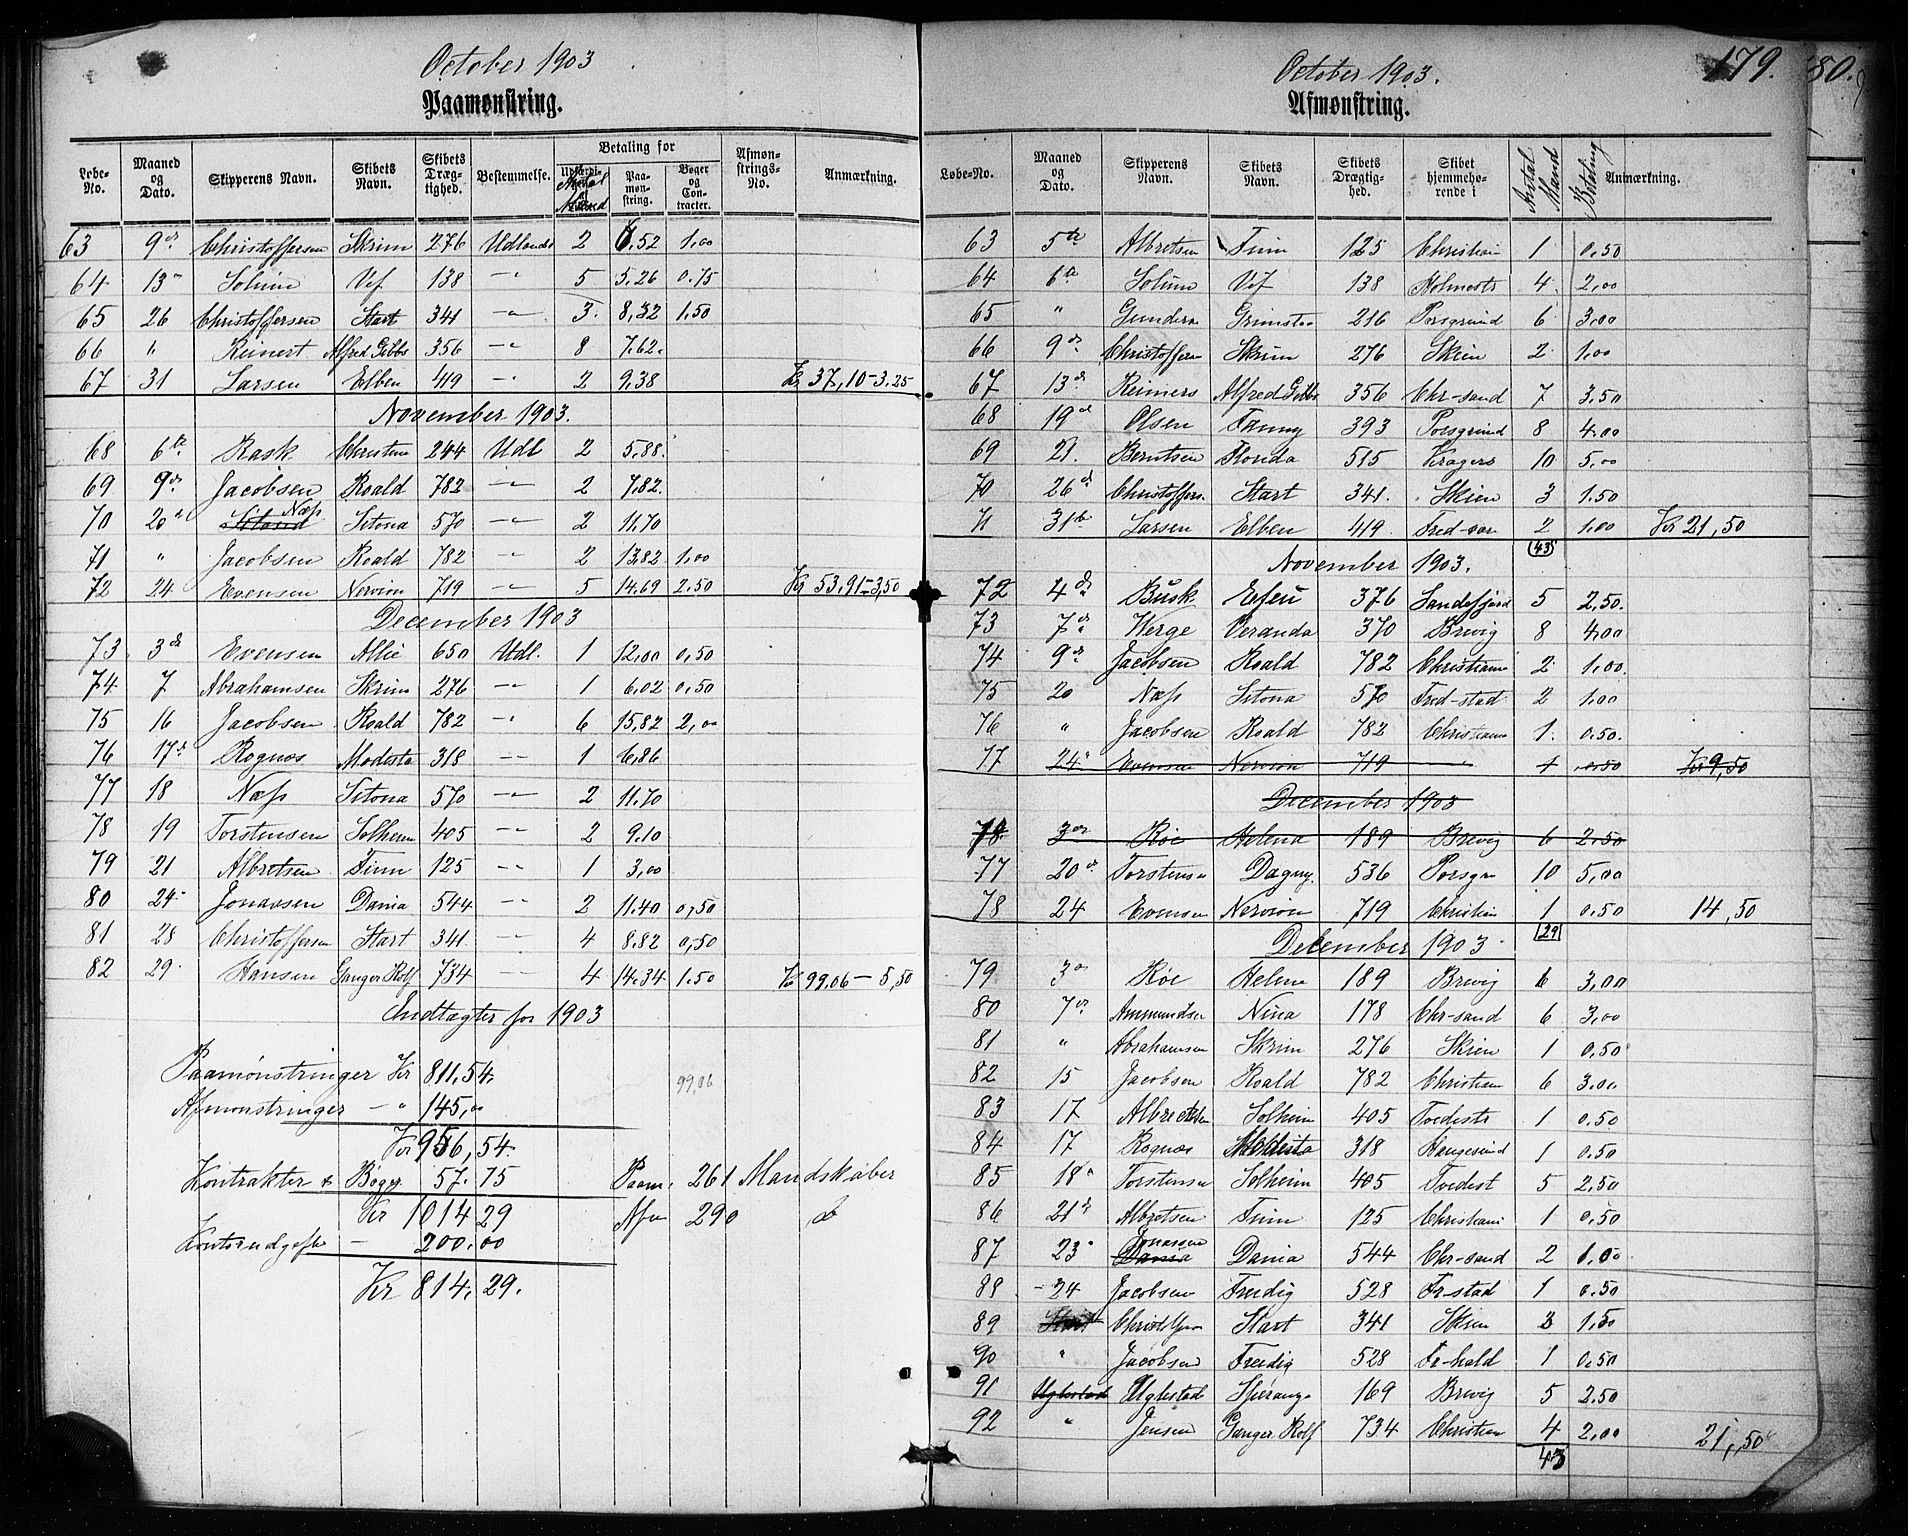 October 1903
Paamønstring.
Løbe-No. | Maaned og Dato. | Skipperens Navn. | Skibets Navn. | Skibets Dræg-tighed. | Bestemmelse. | Betaling for | Antal Mand | Paa-møn-string. | Bøger og Con-tracter. | Afmøn-strings-No. | Anmærkning.
63 9de Christoffersen Skrim 276 Udlandet 2 6,52 1,00
64 13 Solum Vif 138 -"- 5 5.26 0.75
65 26 Christoffersen Start 341 -"- 3. 8,32 1,50
66 " Reinert Alfred Gibbs 356 -"- 8 7.62.
67 31 Larsen Elben 419 -"- 2 9,38 Kr 37,10-3.25
November 1903.
68 6te Rask Christine 244 Udl 2 5.88.
69 9de Jacobsen Roald 782 -"- 2 7.82.
70 20 Næss Sitona 570 -"- 2 11.70
71 " Jacobsen Roald 782 -"- 2 13.82 1,00
72 24 Evensen Nervion 719 -"- 5 14.69 2.50 Kr 53.91-3,50
December 1903
73 3de Evensen Allie 650 Udl. 1 12,00 0,50
74 7 Abrahamsen Skrim 276 -"- 1 6.02 0,50
75 16 Jacobsen Roald 782 -"- 6 15,82 2,00
76 17de Rognos Modesta 318 -"- 1 6.86
77 18 Næss Sitona 570 -"- 2 11.70
78 19 Torstensen Solheim 405 -"- 2 9.10
79 21 Albretsen Finn 125 -"- 1 3,00
80 24 Jonassen Dania 544 -"- 2 11.40 0,50
81 28 Christoffersen Start 341 -"- 4 8.82 0,50
82 29 Hansen Ganger Rolf 734 -"- 4 14.34 1.50 Kr 99.06 - 5,50
Indtægter for 1903
Paamønstringer Kr 811.54.
99,06
Afmønstringer - " 145,00
Kr 956,54.
Kontrakter & Bøger 57.75 Paam. 261 Mandskaber
Kr 1014 29 Afm 290 do
Kontorudgifte - 200.00
Kr 814.29.
October 1903.
179.
80.
Afmønstring.
Løbe-No. | Maaned og Dato. | Skipperens Navn. | Skibets Navn. | Skibets Drægtig-hed. | Skibet hjemmehø-rende i | Antal Mand | Betaling | Anmærkning.
63 5te Albretsen Finn 125 Christiania 1 0.50
64 6te Solum Vif 138 Holmestr 4 2,00
65 " Gunders Grimstad 216 Porsgrund 6 3,00
66 9de Christoffersen Skrim 276 Skien 2 1,00
67 13de Reimers Alfred Gibbs 356 Chr-sand 7 3.50
68 19de Olsen Fanny 393 Porsgrund 8 4,00
69 21. Berntsen Florida 515 Kragerø 10 5,00
70 26de Christoffers. Start 341. Skien 3 1.50
71 31te Larsen Elben 419 Fred-vær 2 1,00 Kr 21,50
43
November 1903.
72 4de Busk Efeu 376 Sandefjord 5 2,50.
73 7de Werge Veranda 370 Brevig 8 4,00
74 9de Jacobsen Roald 782 Christiania 2 1.00
75 20 Næss Sitona 570 Fred-stad 2 1,00
76 " Jacobsen Roald 782 Christiania 1 0.50.
77 24 Evensen Nervion 719 " 1 0.50 Kr 9,50
December 1903
78. 3de Røe Helena 189 Brevig 6 2,50
77 20de Torstensen Dagny. 536 Porsgr 10 5,00
78 24 Evensen Nervion 719 Christian 1 0.50 14,50
29
December 1903.
79 3de Røe Helene 189 Brevig 6 3,00
80 7de Ammundsen Nina 178 Chr-sand 6 3,00
81 " Abrahamsen Skrim 276 Skien 1 0.50
82 15 Jacobsen Roald 782 Christiania 6 3.00
83 17 Albrectsen Solheim 405 Tvedestr 1 0.50
84 17 Rognos Modesta 318 Haugesund 1 0.50
85 18 Torstensen Solheim 405 Tvedest 5 2,50
86 21de Albretsen Finn 125 Christiania 1 0.50
87 23 Jonassen Dania 544 Chr-sand 2 1.00
88 -24 Jacobsen Freidig 528 Fr-stad 1 0.50
89 Christoffersen Start 341 Skien 3 1,50
90 " Jacobsen Freidig 528 Fr-hald 1 0.50
91 Uglestad Uglestad 169 Brevig 5 2.50
92 " Jensen Ganger Rolf 734 Christian 4 2,00 21,50
43